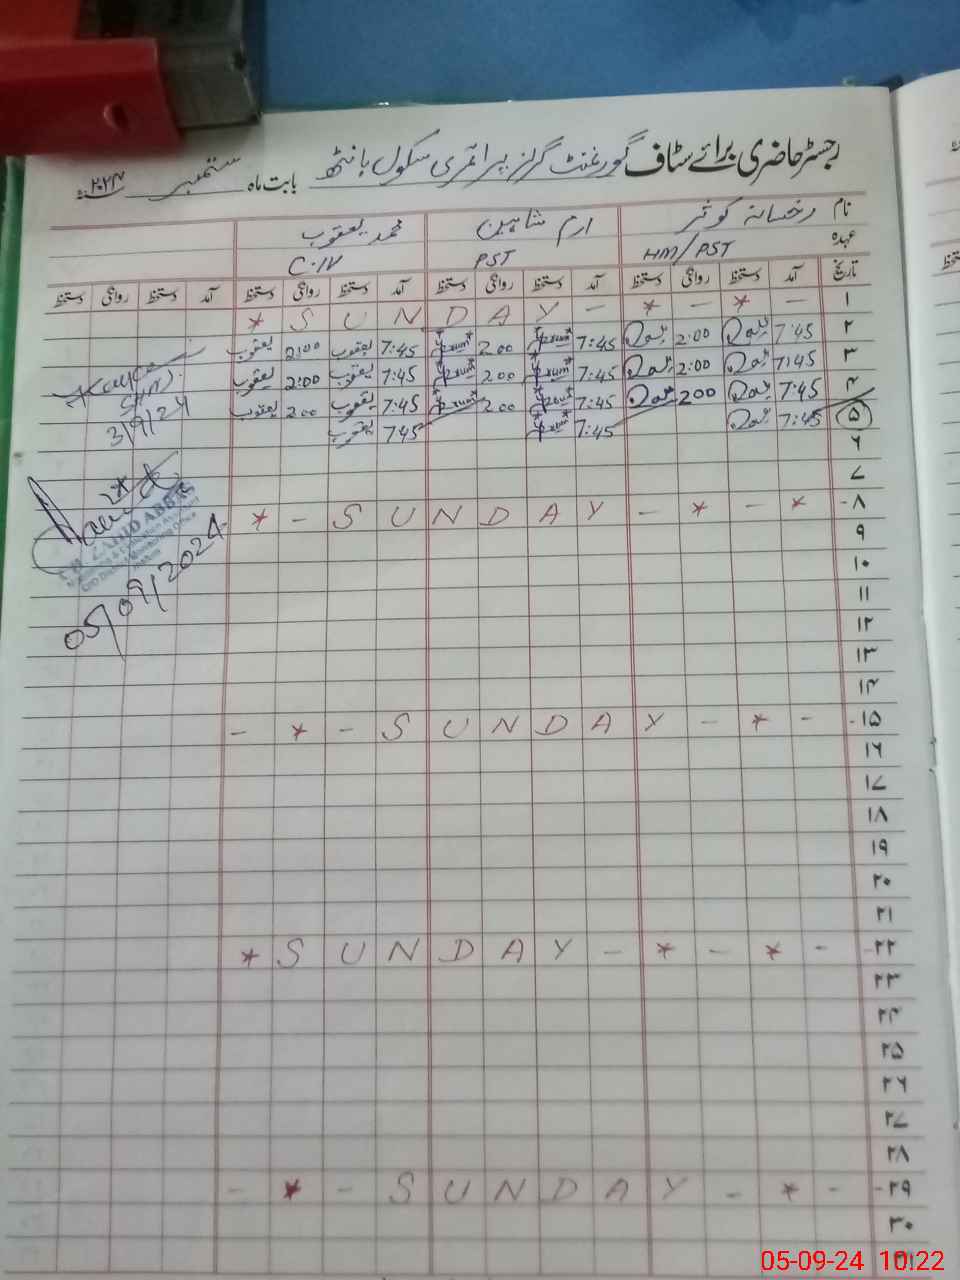 رجسٹر حاضری برائے سٹاف گورنمنٹ گرلز پرائمری سکول بانٹھ بابت ماہ ستمبر ۲۰۲۴
نام رخسانہ کوثر ارم شاہین محمد یعقوب
عہدہ HM/PST PST C-IV
تاریخ آمد دستخط روانگی دستخط آمد دستخط روانگی دستخط آمد دستخط روانگی دستخط آمد دستخط روانگی دستخط
۱ * S U N D A Y - * - * -
۲ 7:45 2:00 7:45 2:00 7:45 یعقوب 2:00 یعقوب
۳ 7:45 2:00 7:45 2:00 7:45 یعقوب 2:00 یعقوب
۴ 7:45 200 7:45 200 7:45 یعقوب 200 یعقوب
۵ 7:45 7:45 745 یعقوب
3/9/24
۶
۷
۸ * - S U N D A Y - * - *
ZAHID ABBAS
05/09/2024
۹
۱۰
۱۱
۱۲
۱۳
۱۴
۱۵ - * - S U N D A Y - * -
۱۶
۱۷
۱۸
۱۹
۲۰
۲۱
۲۲ * S U N D A Y - * - * -
۲۳
۲۴
۲۵
۲۶
۲۷
۲۸
۲۹ - * - S U N D A Y - * -
۳۰
۳۱
05-09-24 10:22